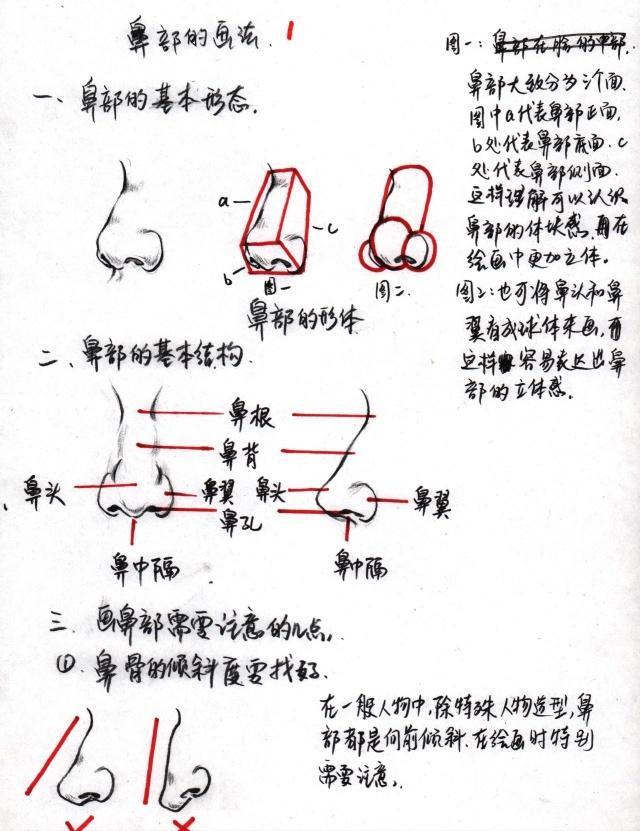 鼻部的画法. 1
图一: 鼻部在脸的中部.
一、鼻部的基本形态.
鼻部大致分为三个面.
图中a代表鼻部正面,
b处代表鼻部底面. c
处代表鼻部侧面.
这样理解可以认识
鼻部的体块感, 再在
绘画中更加立体。
a
c
b
图一
图二.
鼻部的形体
图二: 也可将鼻头和鼻
翼看成球体来画, 而
这样 容易表达出鼻
部的立体感.
二、鼻部的基本结构.
鼻根
鼻背
鼻头
鼻翼
鼻头
鼻翼
鼻孔
鼻中隔
鼻中隔
三. 画鼻部需要注意的几点.
①. 鼻骨的倾斜度要找好.
在一般人物中, 除特殊人物造型, 鼻
部都是向前倾斜. 在绘画时特别
需要注意.